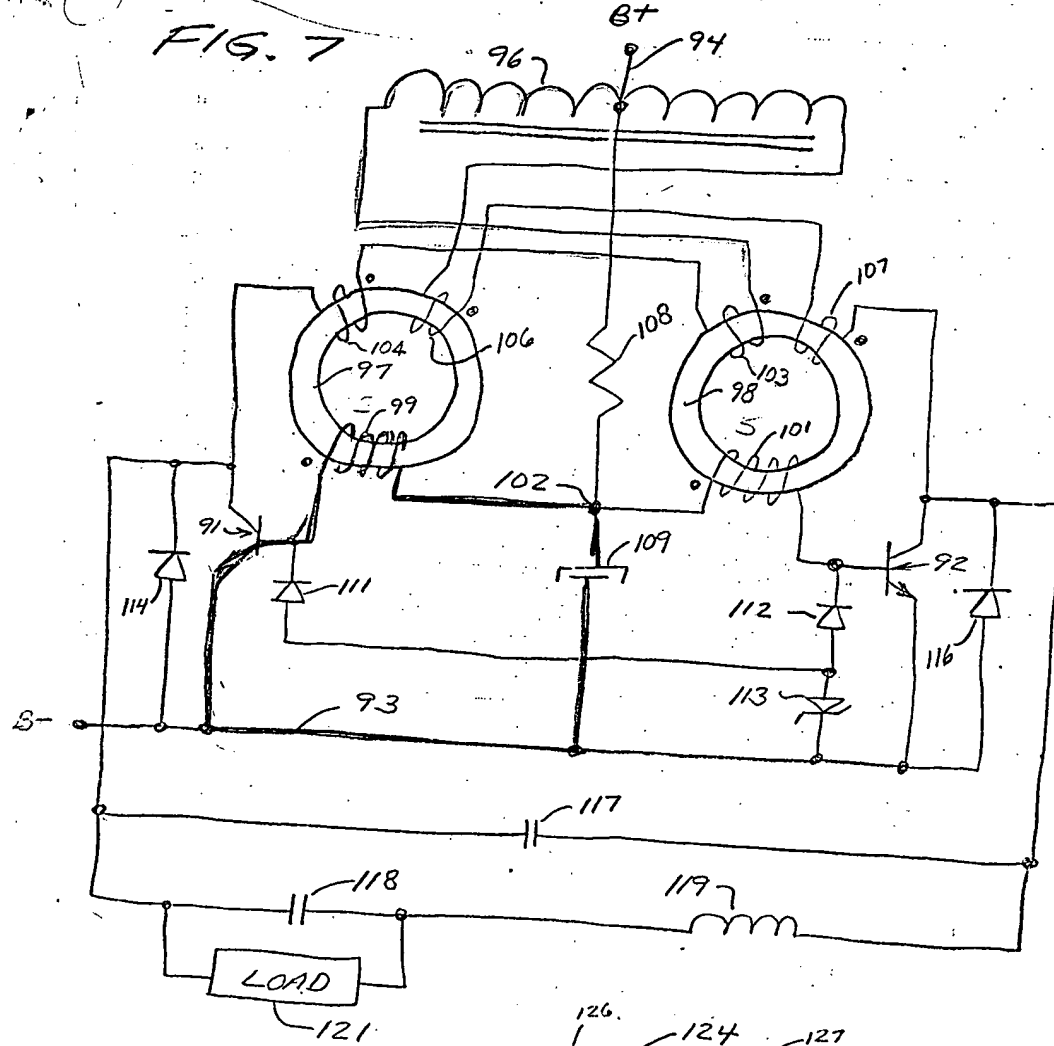 B+
FIG. 7
96
94
107
104
106
108
103
97
98
99
S
101
102
91
109
92
114
111
112
116
113
B-
93
117
118
119
LOAD
121
126
124
127